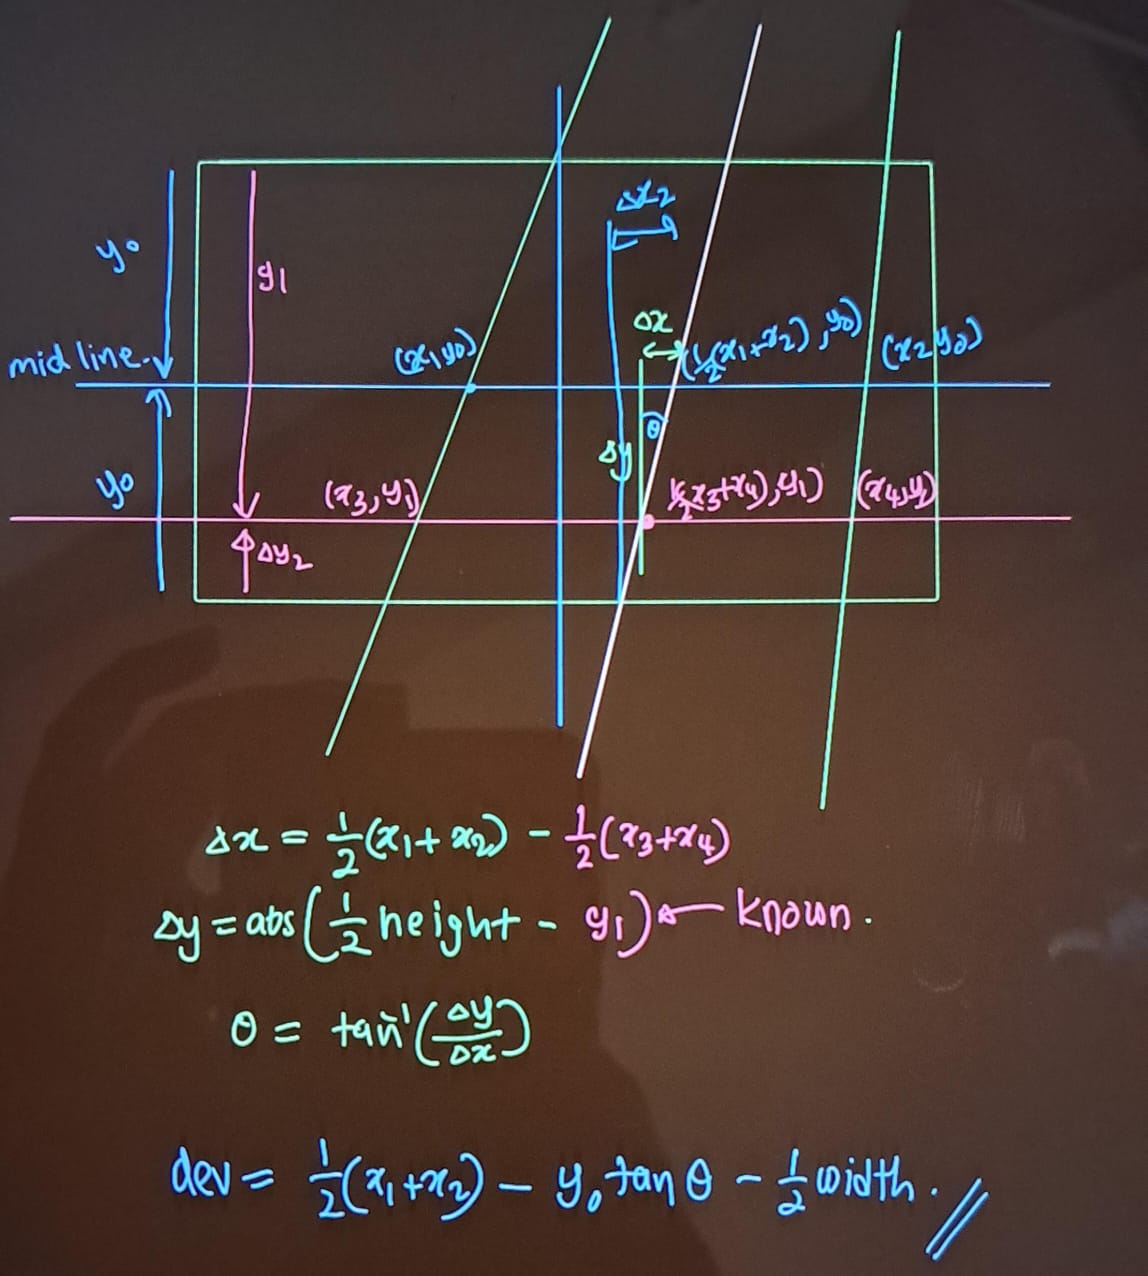 Δx₂
y₀
y₁
Δx
mid line
(x₁y₀)
(½(x₁+x₂), y₀)
(x₂y₀)
θ
Δy
y₀
(x₃, y₁)
(½(x₃+x₄), y₁)
(x₄, y₁)
Δy₂
Δx = ½(x₁ + x₂) - ½(x₃+x₄)
Δy = abs(½ height - y₁) ← known.
θ = tan⁻¹(Δy/Δx)
dev = ½(x₁+x₂) - y₀ tan θ - ½ width. //